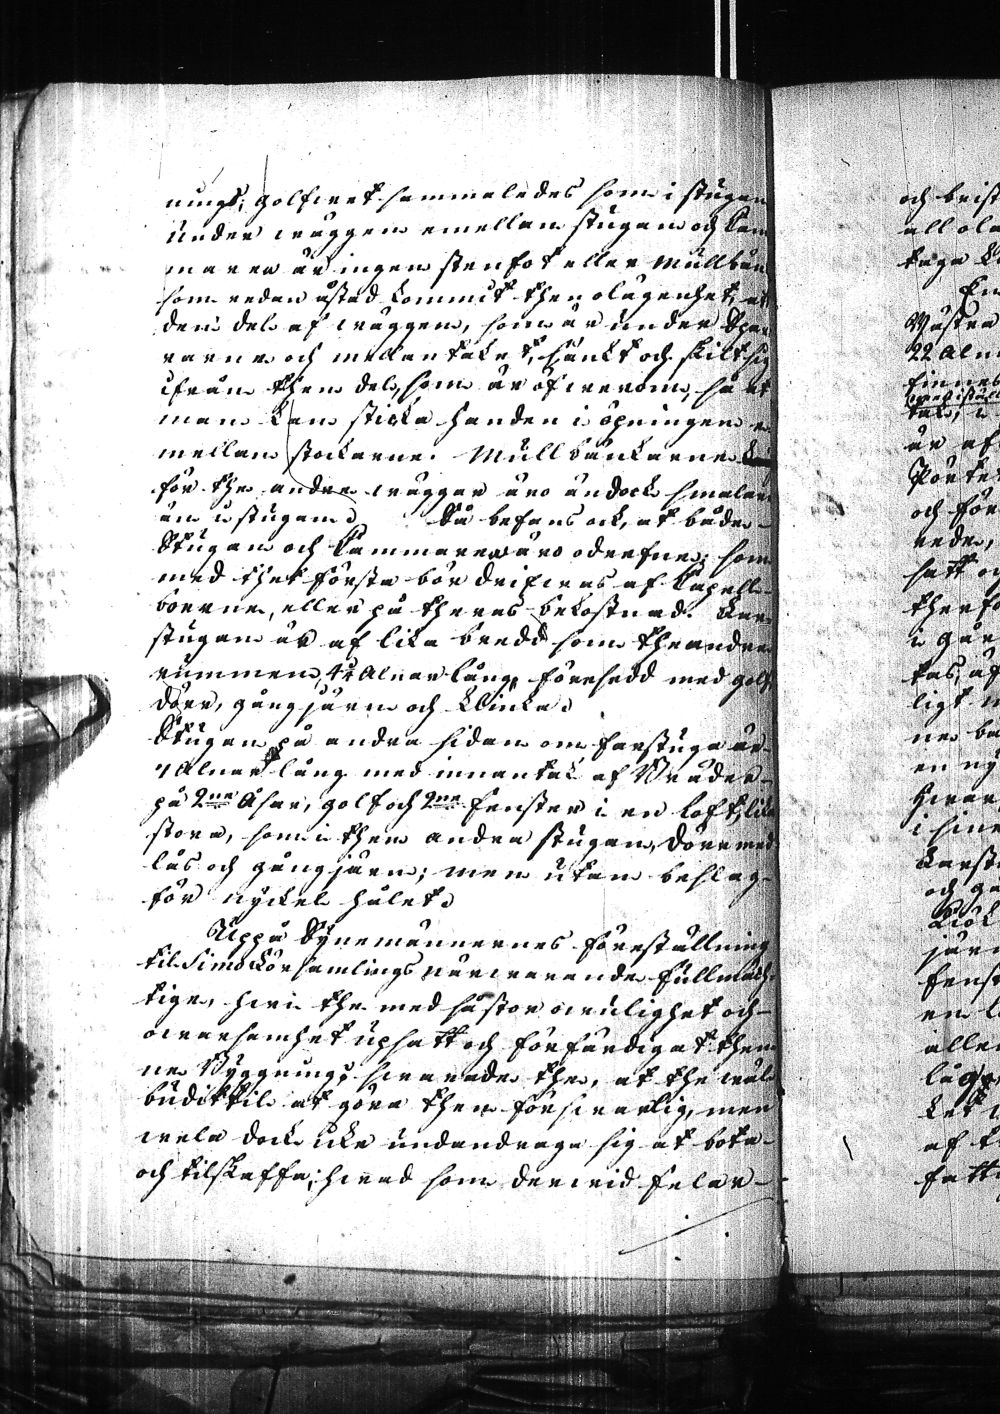 nings, golfwet sammaledes som i stugan
under wäggen emellan stugan och Kam
maren är ingen stenfot eller Mullbän
som redan åstad kommit then olägenhet, at
den del af wäggen, som är under Spar
rarne och mellantaket, sänkt och skilt sig
ifrån then del, som är ofwerom, så at
man kan sticka handen i öpningen e
mellan stockarne. Mullbänkarne
för the andre wäggar äro ändock smalare
än i stugan. Så befans ock, at både
Stugan och Kammaren äro odrefne; som
med thet första bör drifwas af Capell
boerne, eller på theras bekostnad.
stugan är af lika bredd som the andre
rummen, 4¼ Alnar lång, försedd med golf,
dörr, gångjärn och Klinka.
Stugan på andra sidan om farstuga är
7 Alnar lång med innantak af Bräder
på 2ne Åsar, golf och 2ne fenster i en luft, lika
stora, som i then andra stugan, dörr med
lås och gångjärn; men utan beslag
för nyckel hålet.
Uppå Synemännernes föreställning
til Simo Församlings närwarande fullmäch
tige, hwi the med så stor owulighet och
owarsamhet upsatt och förfärdigat then
ne Byggning, swarade the, at the wäl
budit til at göra then förswarlig, men
wela dock icke undandraga sig at bota
och tilskaffa, hwad som derwid felar

och brist
all ola
taga
En
Västra
22 Aln
finnes
tak, i
är af
Pörte
och för
rede,
satt oc
therfö
i går
tas, af
ligt
ne
en ny
hwar
i sine
och gå
järn
fenst
en l
alle
låg
ket
af t
fatt